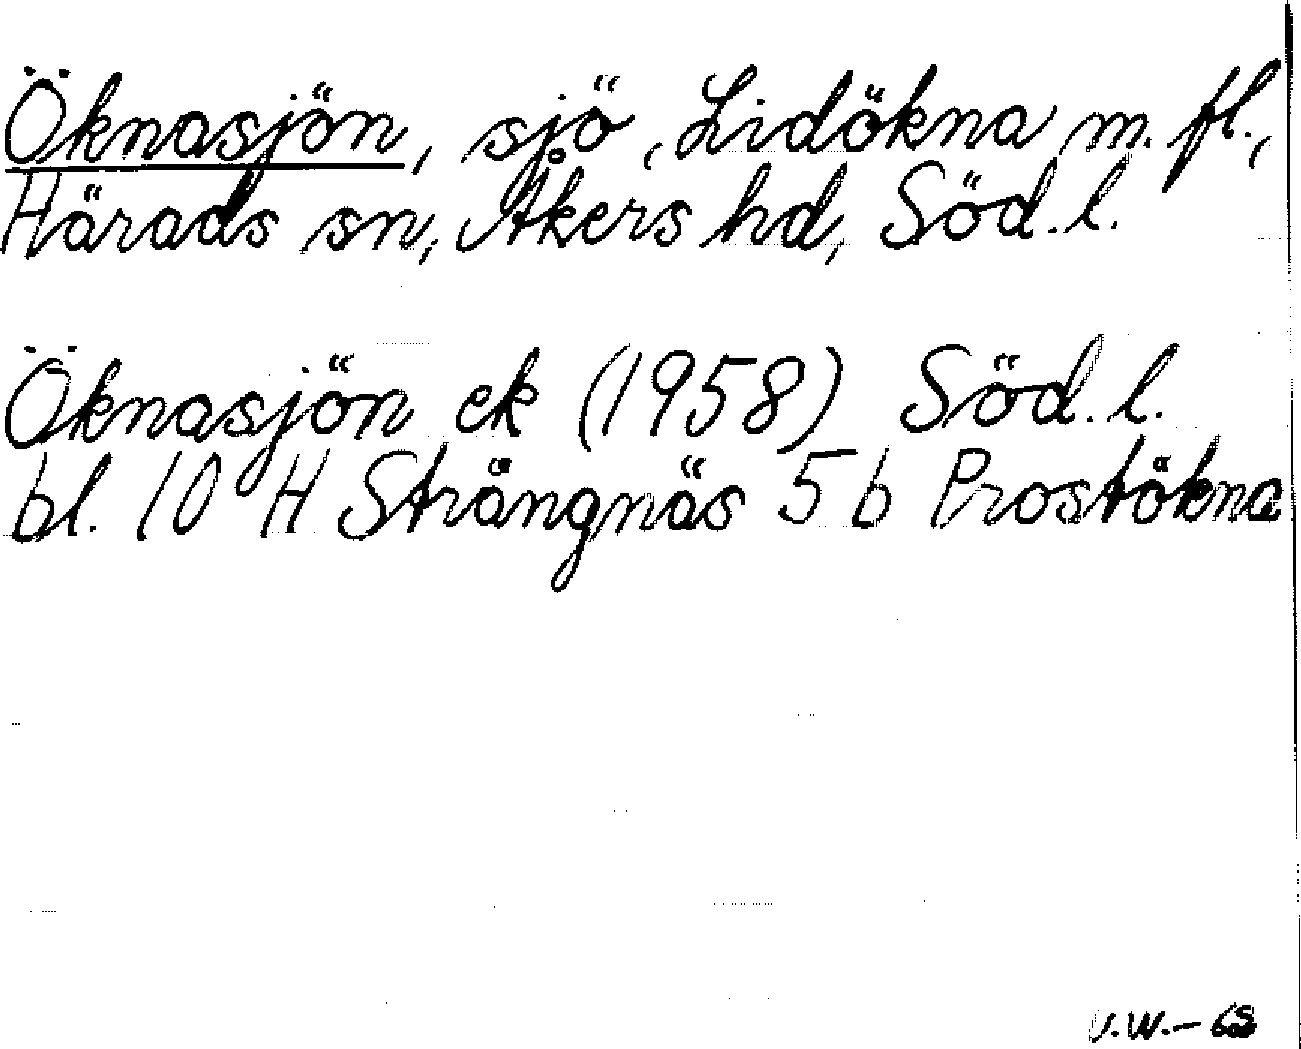 Öknasjön, sjö, Lidökna m. fl.,
Härads sn, Åkers hd, Söd. l.
Öknasjön ek (1958) Söd. l.
bl. 10 H Strängnäs 5 b Prostökna
V.W.-